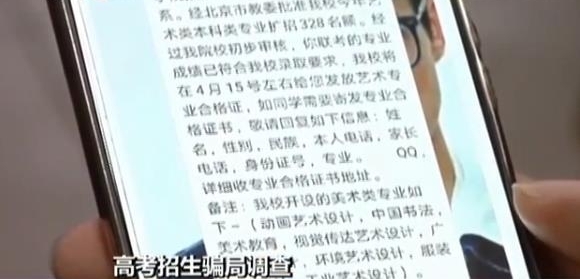 系。经北京市教委批准我校今年艺
术类本科类专业扩招328名额。经
过我院校初步审核，你联考的专业
成绩已符合我校录取要求，我校将
在4月15号左右给您发放艺术专
业合格证，如同学需要寄发专业合
格证书，敬请回复如下信息：姓
名，性别，民族，本人电话，家长
电话，身份证号，专业。 QQ，
详细收专业合格证书地址。
备注：我校开设的美术类专业如
下-（动画艺术设计，中国书法，
美术教育，视觉传达艺术设计，广
计，环境艺术设计，服装
工业艺术设计）
高考招生骗局调查